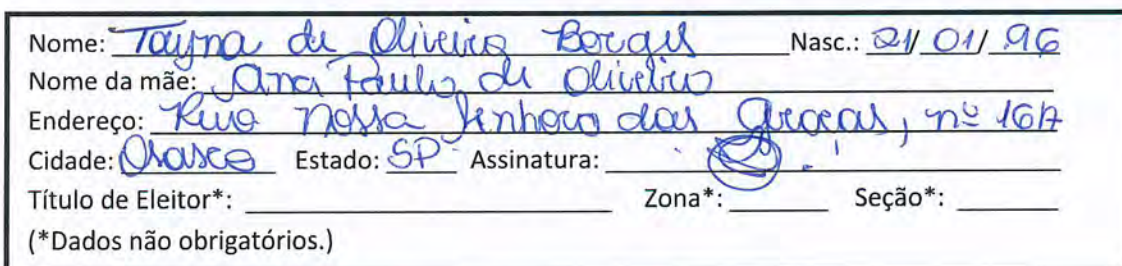 Nome: Tayna de Oliveira Borges Nasc.: 21/01/96
Nome da mãe: Ana Paula de Oliveira
Endereço: Rua Nossa Senhora das Graças, nº 16A
Cidade: Osasco Estado: SP Assinatura:
Título de Eleitor*: Zona*: Seção*:
(*Dados não obrigatórios.)